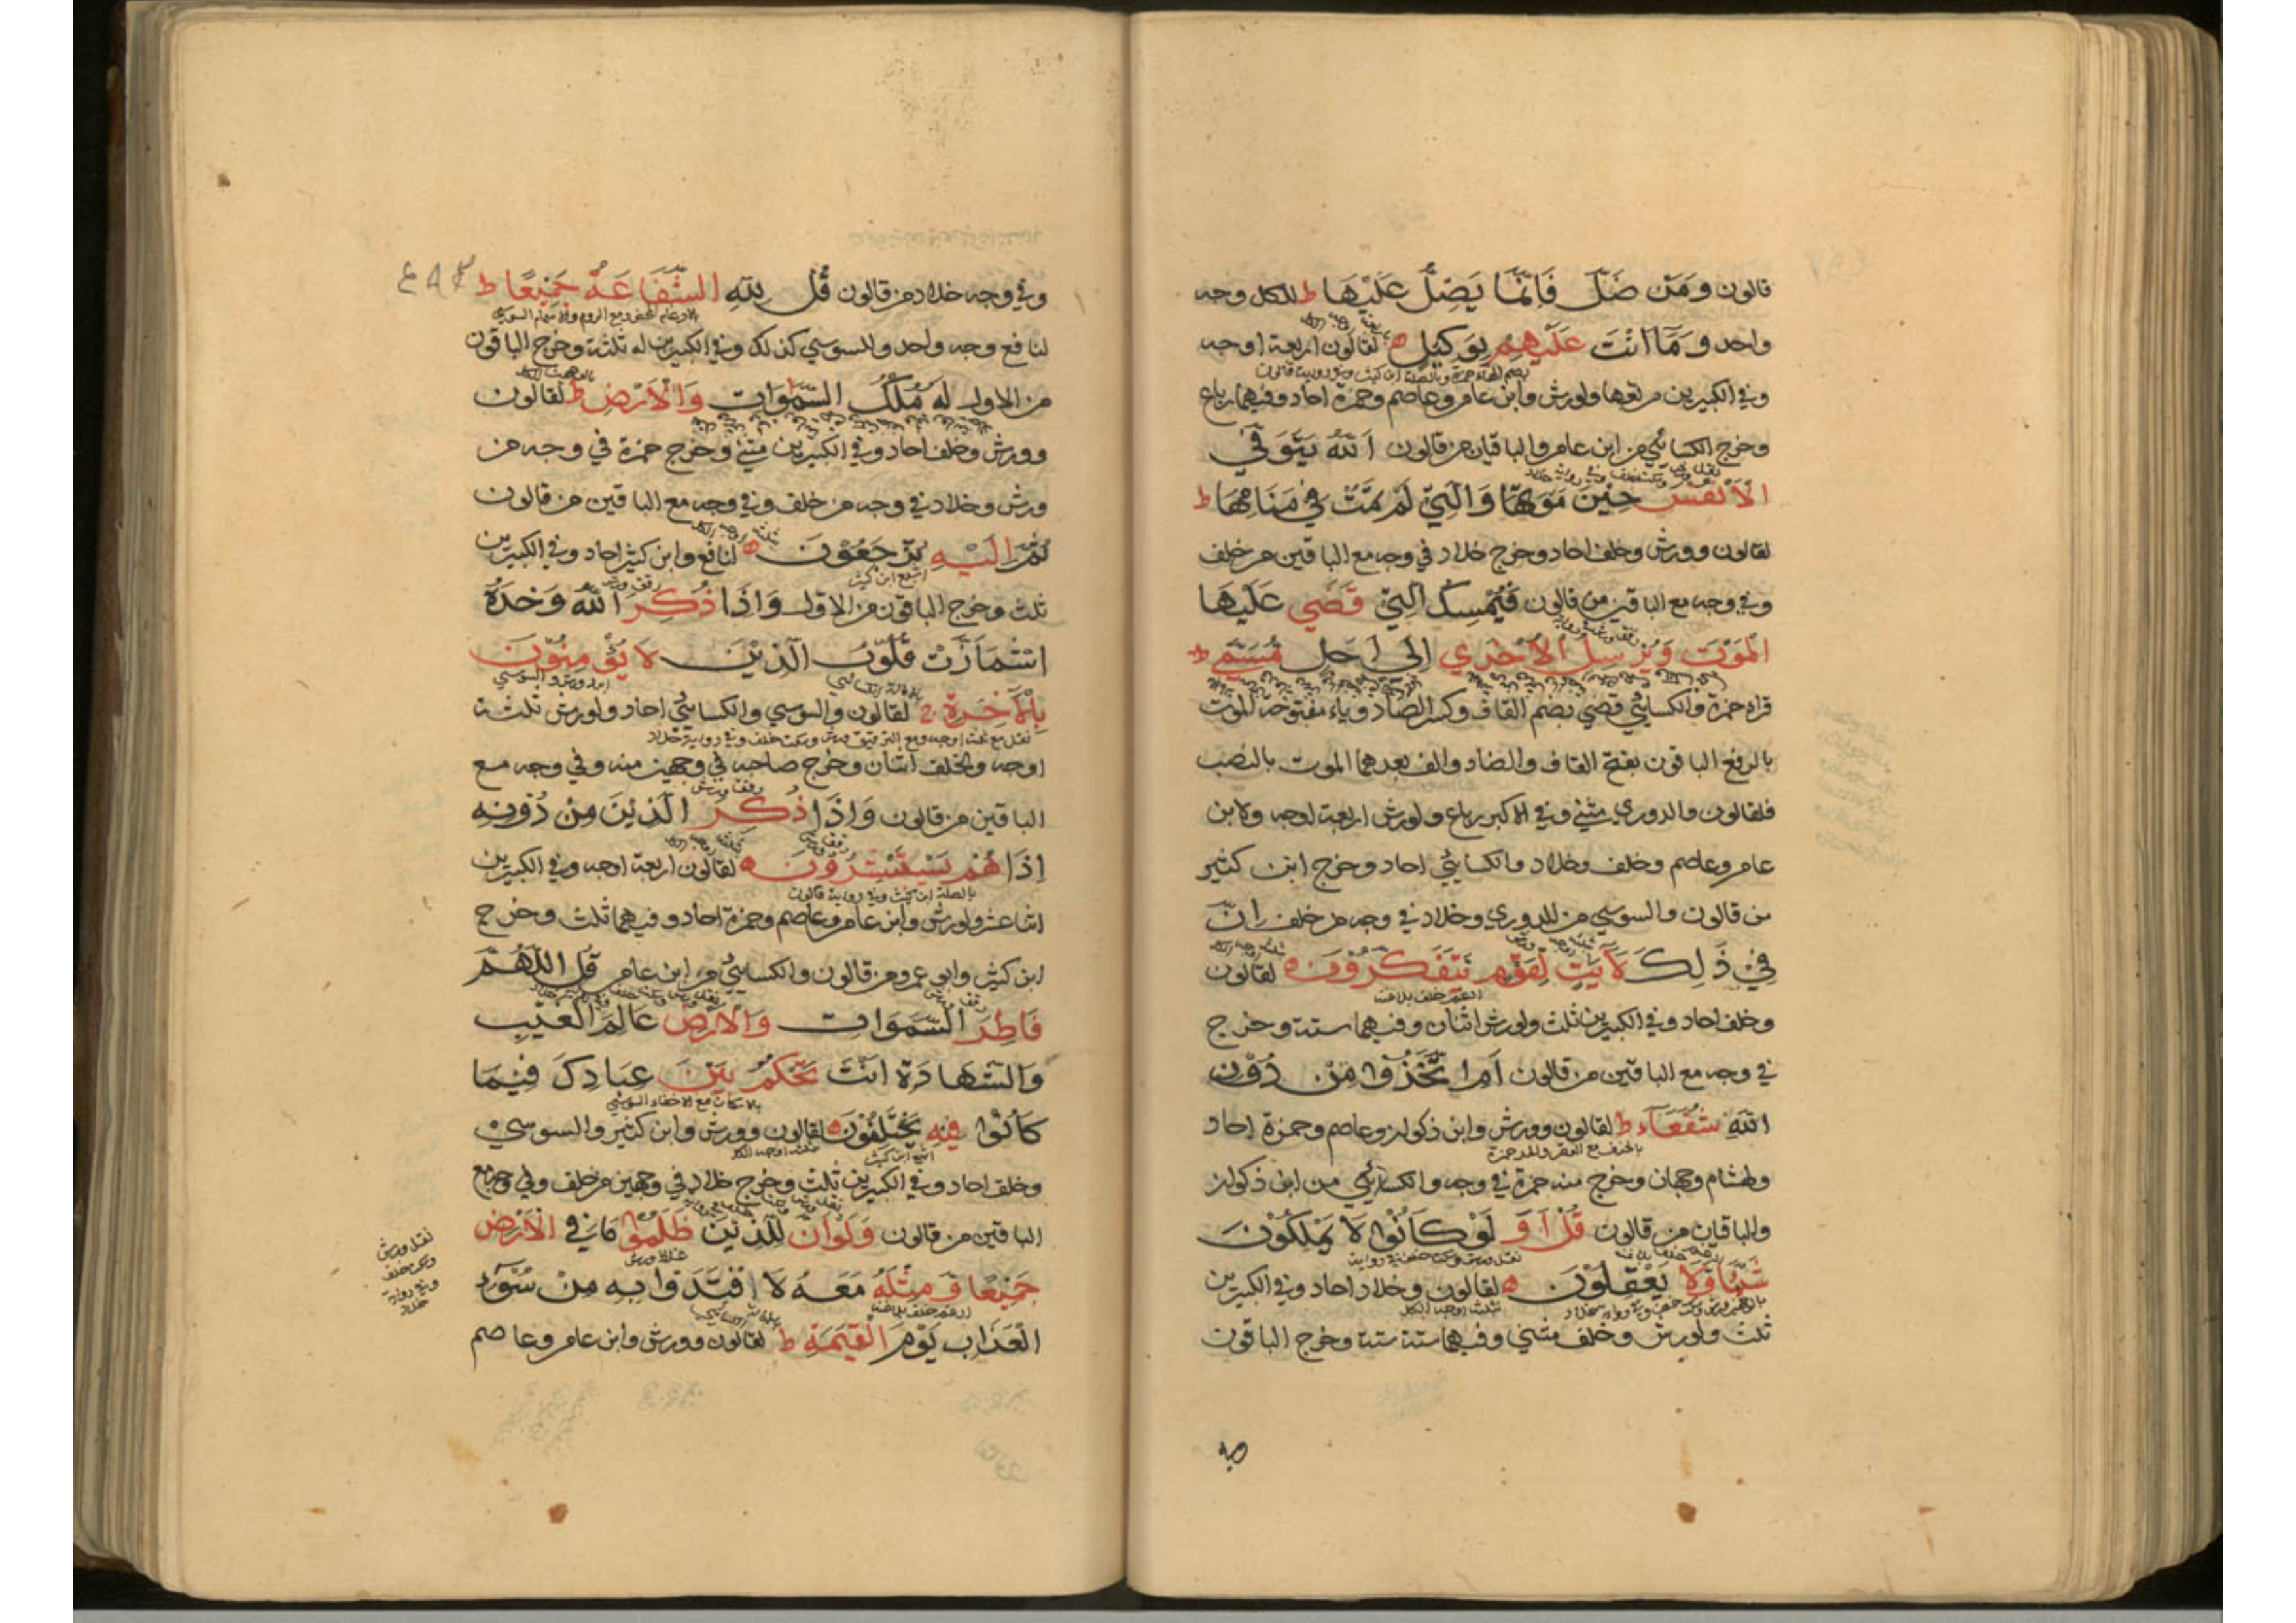 قالون وَمَنْ ضَلَّ فَاِنَّمَا يَضِلُّ عَلَيْهَا ط للكل وجه
واحد وَمَا اَنْتَ عَلَيْهِمْ بِوَكِيْلٍ ه لقالون اربعة اوجه
وفي الكبيرين مربعها ولورش وابن عامر وعاصم وحمزة احاد وفيهما رباع
وخرج الكسائي من ابن عامر والباقيان من قالون اَللّٰهُ يَتَوَفَّي
الْاَنْفُسَ حِيْنَ مَوْتِهَا وَالَّتِيْ لَمْ تَمُتْ فِيْ مَنَامِهَا ط
لقالون وورش وخلف احاد وخرج خلاد في وجه مع الباقين من خلف
وفي وجه مع الباقين من قالون فَيُمْسِكُ الَّتِيْ قَضٰي عَلَيْهَا
الْمَوْتَ وَيُرْسِلُ الْاُخْرٰي اِلٰي اَجَلٍ مُسَمًّي ط
قراه حمزة والكسائي قضي بضم القاف وكسر الضاد وياء مفتوحة الموت
بالرفع الباقون بفتح القاف والضاد والف بعدهما الموت بالنصب
فلقالون والدوري مثني وفي الاكبر رباع ولورش اربعة اوجه ولابن
عامر وعاصم وخلف وخلاد والكسائي احاد وخرج ابن كثير
من قالون والسوسي من الدوري وخلاد في وجه من خلف اِنَّ
فِيْ ذٰلِكَ لَاٰيٰتٍ لِقَوْمٍ يَتَفَكَّرُوْنَ ه لقالون
وخلف احاد وفي الكبيرين ثلث ولورش اثنان وفيهما ستة وخرج
في وجه مع الباقين من قالون اَمِ اتَّخَذُوْا مِنْ دُوْنِ
اللّٰهِ شُفَعَآءَ ط لقالون وورش وابن ذكوان وعاصم وحمزة احاد
ولهشام وجهان وخرج منه حمزة في وجه والكسائي من ابن ذكوان
والباقيان من قالون قُلْ اَوَ لَوْ كَانُوْا لَا يَمْلِكُوْنَ
شَيْئًا وَلَا يَعْقِلُوْنَ ه لقالون وخلاد احاد وفي الكبيرين
ثلث ولورش وخلف مثني وفيهما ستة ستة وخرج الباقون
وفي وجه خلاد من قالون قُلْ لِلّٰهِ الشَّفَاعَةُ جَمِيْعًا ط
لنافع وجه واحد وللسوسي كذلك وفي الكبيرين له ثلثة وخرج الباقون
من الاول لَهُ مُلْكُ السَّمٰوَاتِ وَالْاَرْضِ ط لقالون
وورش وخلف احاد وفي الكبيرين مثني وخرج حمزة في وجه من
ورش وخلاد في وجه من خلف وفي وجه مع الباقين من قالون
ثُمَّ اِلَيْهِ تُرْجَعُوْنَ ه لنافع وابن كثير احاد وفي الكبيرين
ثلث وخرج الباقون من الاول وَاِذَا ذُكِرَ اللّٰهُ وَحْدَهُ
اشْمَاَزَّتْ قُلُوْبُ الَّذِيْنَ لَا يُؤْمِنُوْنَ
بِالْاٰخِرَةِ ج لقالون والسوسي والكسائي احاد ولورش ثلثة
اوجه ولخلف اثنان وخرج صاحبه في وجهين منه وفي وجه مع
الباقين من قالون وَاِذَا ذُكِرَ الَّذِيْنَ مِنْ دُوْنِهِ
اِذَا هُمْ يَسْتَبْشِرُوْنَ ه لقالون اربعة اوجه وفي الكبيرين
اثنا عشر ولورش وابن عامر وعاصم وحمزة احاد وفيهما ثلث وخرج
ابن كثير وابي عمرو من قالون والكسائي من ابن عامر قُلِ اللّٰهُمَّ
فَاطِرَ السَّمٰوَاتِ وَالْاَرْضِ عَالِمَ الْغَيْبِ
وَالشَّهَادَةِ اَنْتَ تَحْكُمُ بَيْنَ عِبَادِكَ فِيْمَا
كَانُوْا فِيْهِ يَخْتَلِفُوْنَ ه لقالون وورش وابن كثير والسوسي
وخلف احاد وفي الكبيرين ثلث وخرج خلاد في وجهين من خلف وفي وجه مع
الباقين من قالون وَلَوْ اَنَّ لِلَّذِيْنَ ظَلَمُوْا مَا فِي الْاَرْضِ
نقل ورش
وسكت خلف
وفي رواية
خلاد
جَمِيْعًا وَّمِثْلَهُ مَعَهُ لَا افْتَدَوْا بِهِ مِنْ سُوْٓءِ
الْعَذَابِ يَوْمَ الْقِيٰمَةِ ط لقالون وورش وابن عامر وعاصم